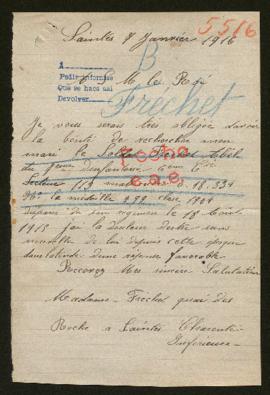 5516
Saintes 8 Janvier 1916
B
A
Pedir informes
Que se haga así
Devolver
M le Roi
Frechet
Je vous serais très obligée d'avoir
la bonté de rechercher mon
mari le Soldat Abel
du
Secteur 119 18.534
No la médaille 998 classe 1904
disparu de son régiment le 18
1915 j'ai la douleur d'être sans
nouvelle de lui depuis cette époque
dans l'attente d'une réponse favorable
Recevez Mes sincère Salutation
Madame Frechet quai des
Roche à Saintes Charente
Inférieure